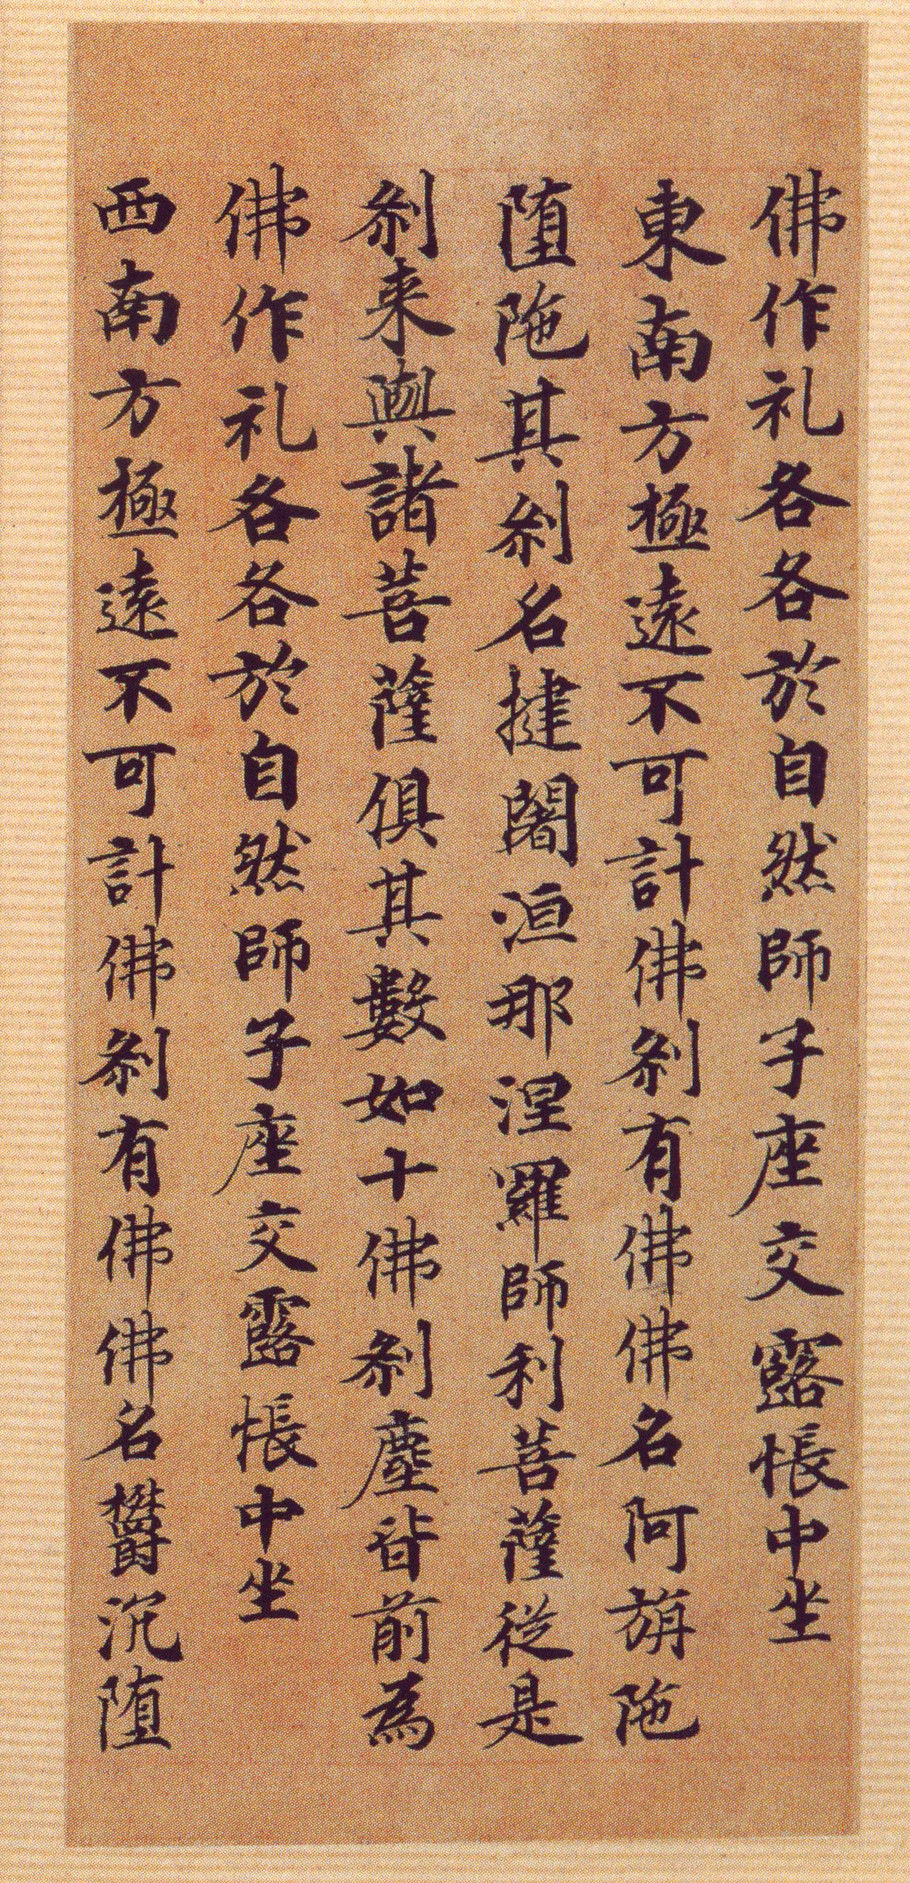 佛作礼各各於自然師子座交露帳中坐
東南方極遠不可計佛刹有佛佛名阿旃陁
堕陁其刹名揵闍洹那涅羅師利菩薩從是
刹来與諸菩薩俱其數如十佛刹塵皆前為
佛作礼各各於自然師子座交露帳中坐
西南方極遠不可計佛刹有佛佛名欝沉堕